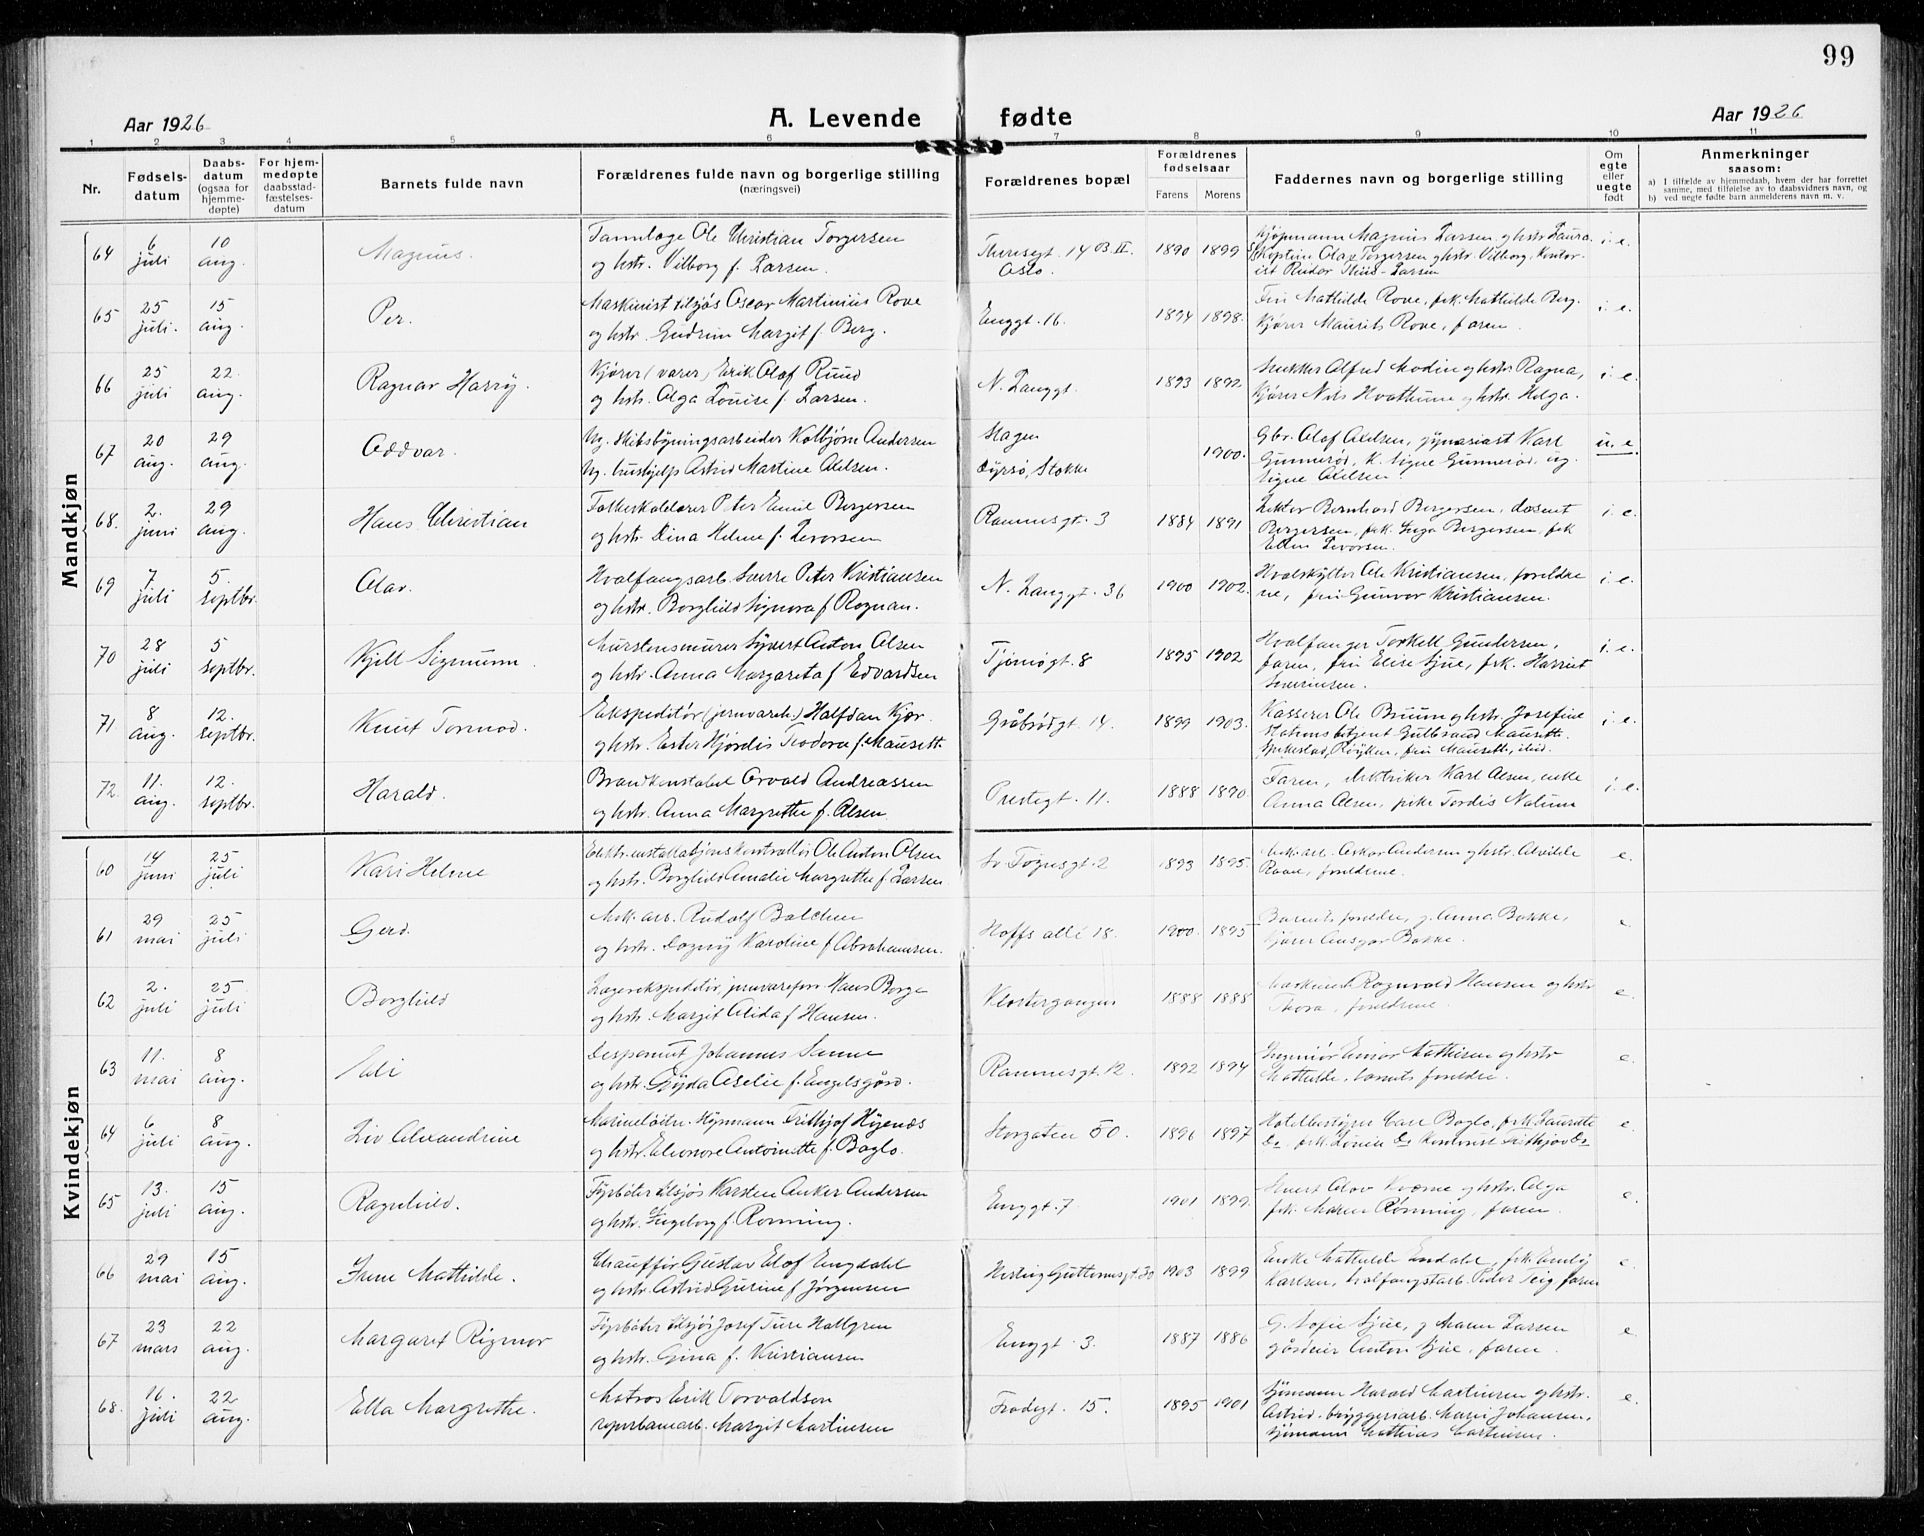 99
Aar 1926
A. Levende fødte
Aar 1926
1 2 3 4 5 6 7 8 9 10 11
Nr.
Fødselsdatum
Daabsdatum (ogsaa for hjemmedøpte)
For hjemmedøpte daabsstadfæstelsesdatum
Barnets fulde navn
Forældrenes fulde navn og borgerlige stilling (næringsvei)
Forældrenes bopæl
Forældrenes fødselsaar
Farens Morens
Faddernes navn og borgerlige stilling
Om egte eller uegte født
Anmerkninger saasom:
a) I tilfælde av hjemmedaab, hvem der har forrettet samme, med tilføielse av to daabsvidners navn, og
b) ved uegte fødte barn anmelderens navn m. v.
Mandkjøn
64 6 juli 10 aug. Magnus.
Tannlæge Ole Christian Torgersen
og hstr. Vilborg f. Larsen.
Theresegt. 14 Oslo 1890 1899
Kjøpmann Magnus Larsen og hstr. Laura
Kaptein Olav Torgersen og hstr. Vilborg, Kontorist Reidar Thiis-Larsen
i. e.
65 25 juli. 15 aug. Per.
Maskinist tilsjøs Oscar Martinius Rove
og hstr. Gudrun Margit f. Berg.
Enggt. 16. 1894 1898.
Fru Mathilde Rove, frk. Mathilde Berg.
Kjører Maurits Rove, faren.
i. e.
66 25 juli 22. aug. Ragnar Harry.
Kjører (varer) Erik Olaf Ruud
og hstr. Olga Louise f. Larsen.
N. Langgt. 1893 1892.
Snekker Alfred Modin og hstr. Ragna,
Kjører Nils Hvathume og hstr. Helga.
i. e.
67 20 aug. 29 aug. Oddvar.
Ug. Skibsbygningsarbeider Kolbjørn Andersen
Ug. hushjelp Astrid Martine Ailsen.
Slagen
Stokke 1900.
Gbr. Olaf Ailsen, gymnasiast Karl
Gunnerød, k. Signe Gunnerød, ug.
Signe Ailsen.
u. e.
68. 2. juni 29 aug. Hans Christian
Folkeskolelærer Peter Emil Bergersen
og hstr. Dina Helene f. Levorsen
Ramnesgt. 3 1884 1891
Lektor Bernhard Bergersen, dosent
Bergersen, frk. Inga Bergersen, frk
Ellen Levorsen.
i. e.
69 7. juli 5. septbr. Olav.
Hvalfangsarb. Sverre Peter Kristiansen
og hstr. Borghild Signora f. Rognan.
N. Langgt. 36 1900 1902.
Hvalskytter Ole Kristiansen, foreldre
ne, fru Gunvor Kristiansen.
i. e.
70 28 juli 5 septbr. Kjell Sigmunn.
Murstensmurer Syvert Anton Olsen
og hstr. Anna Margareta f. Edvardsen
Tjømøgt. 8 1895 1902
Hvalfanger Torkell Gundersen,
faren, fru Elise Sjue, frk. Harriet
Severinsen.
i. e.
71 8 aug. 12. septbr. Knut Tormod.
Ekspeditør (jernvareh.) Halfdan Kjær
og hstr. Ester Hjørdis Teodora f. Mausett.
Gråbrødgt. 14. 1899 1903.
Kasserer Ole Bruum og hstr. Josefine
Stationsbetjent Gulbrand Mausett.
Spikestad, Røyken, fru Mausett, ibid.
i. e.
72. 11. aug. 12. septbr. Harald.
Brandkonstabel Orvald Andreassen
og hstr. Anna Margrethe f. Olsen
Prestegt. 11. 1888 1890
Faren, elektriker Karl Olsen, enke
Anna Olsen, pike Tordis Natum
i. e.
Kvindekjøn
60 14 juni 25 juli Kari Helene
Elektr. installasjonskontrollør Ole Anton Olsen
og hstr. Borghild Amalie Margrethe f. Larsen
Sv. Fognsgt. 2 1893 1895
Mek. arb. Oskar Andersen og hstr. Alvilde
Roae, foreldrene.
e.
61 29 mai 25 juli Gerd.
Mek. arb. Rudolf Balchen
og hstr. Dagny Karoline f. Abrahamsen.
Hoffs allé 18. 1900. 1895
Barnets foreldre, g. Anna Bakke,
kjører Ansgar Bakke.
e
62 2. juli 25 juli Borghild
Lagerekspeditør, jernvareforr. Hans Borge
og hstr. Margit Alida f. Hansen.
Klostergangen 1888 1888
Maskinist Ragnvald Hansen og hstr
Thora, foreldrene.
e.
63 11. mai 8 aug. Eli
Johannes Senne
og hstr. Gyda Aselie f. Engelsgård.
Ramnesgt. 12. 1892 1894
Ingeniør Einar Mathisen og hstr
Mathilde, barnets foreldre.
e
64 6 juli 8 aug. Liv Alexandrine
Marineløitn. Hypmann Frithjof Höyenes
og hstr. Eleonore Antoinette f. Baglo.
Storgaten 50. 1896 1897
Hotelbestyrer Carl Baglo, frk. Laurette
Do, frk. Louise Do Kontorist Frithjov Do
e.
65 13. juli 15 aug. Ragnhild.
Fyrbøter tilsjøs Karsten Anker Andersen
og hstr. Ingeborg f. Rønning.
Enggt. 7 1901 1899.
Olav Kværne og hstr. Olga
frk. Maren Rønning, faren.
e.
66 29 mai 15 aug. Irene Mathilde.
Chauffør Gustav Elof Engdahl
og hstr. Astrid Gurine f. Jørgensen
Hertug Guttormsgt. 20 1903 1899
Enke Mathilde Engdahl, frk. Emily
Karlsen, hvalfangstarb. Peder Teig, faren
e.
67 23 mars 22 aug. Margaret Rigmor
Fyrbøter tilsjøs Josef Ture Hallgren
og hstr. Gina f. Kristiansen
Enggt. 3. 1887 1886
G. Sofie Sjue, g. Maren Larsen
gårdeier Anton Sjue, faren.
e.
68. 16. juli 22 aug. Ella Margrethe.
Matros Erik Torvaldson
reperbanearb. Margit Martinsen
Frodegt. 15. 1895 1901
Sjømann Harald Martinsen og hstr.
Astrid, bryggeriarb. Marie Johansen,
Sjømann Mathias Martinsen.
e.